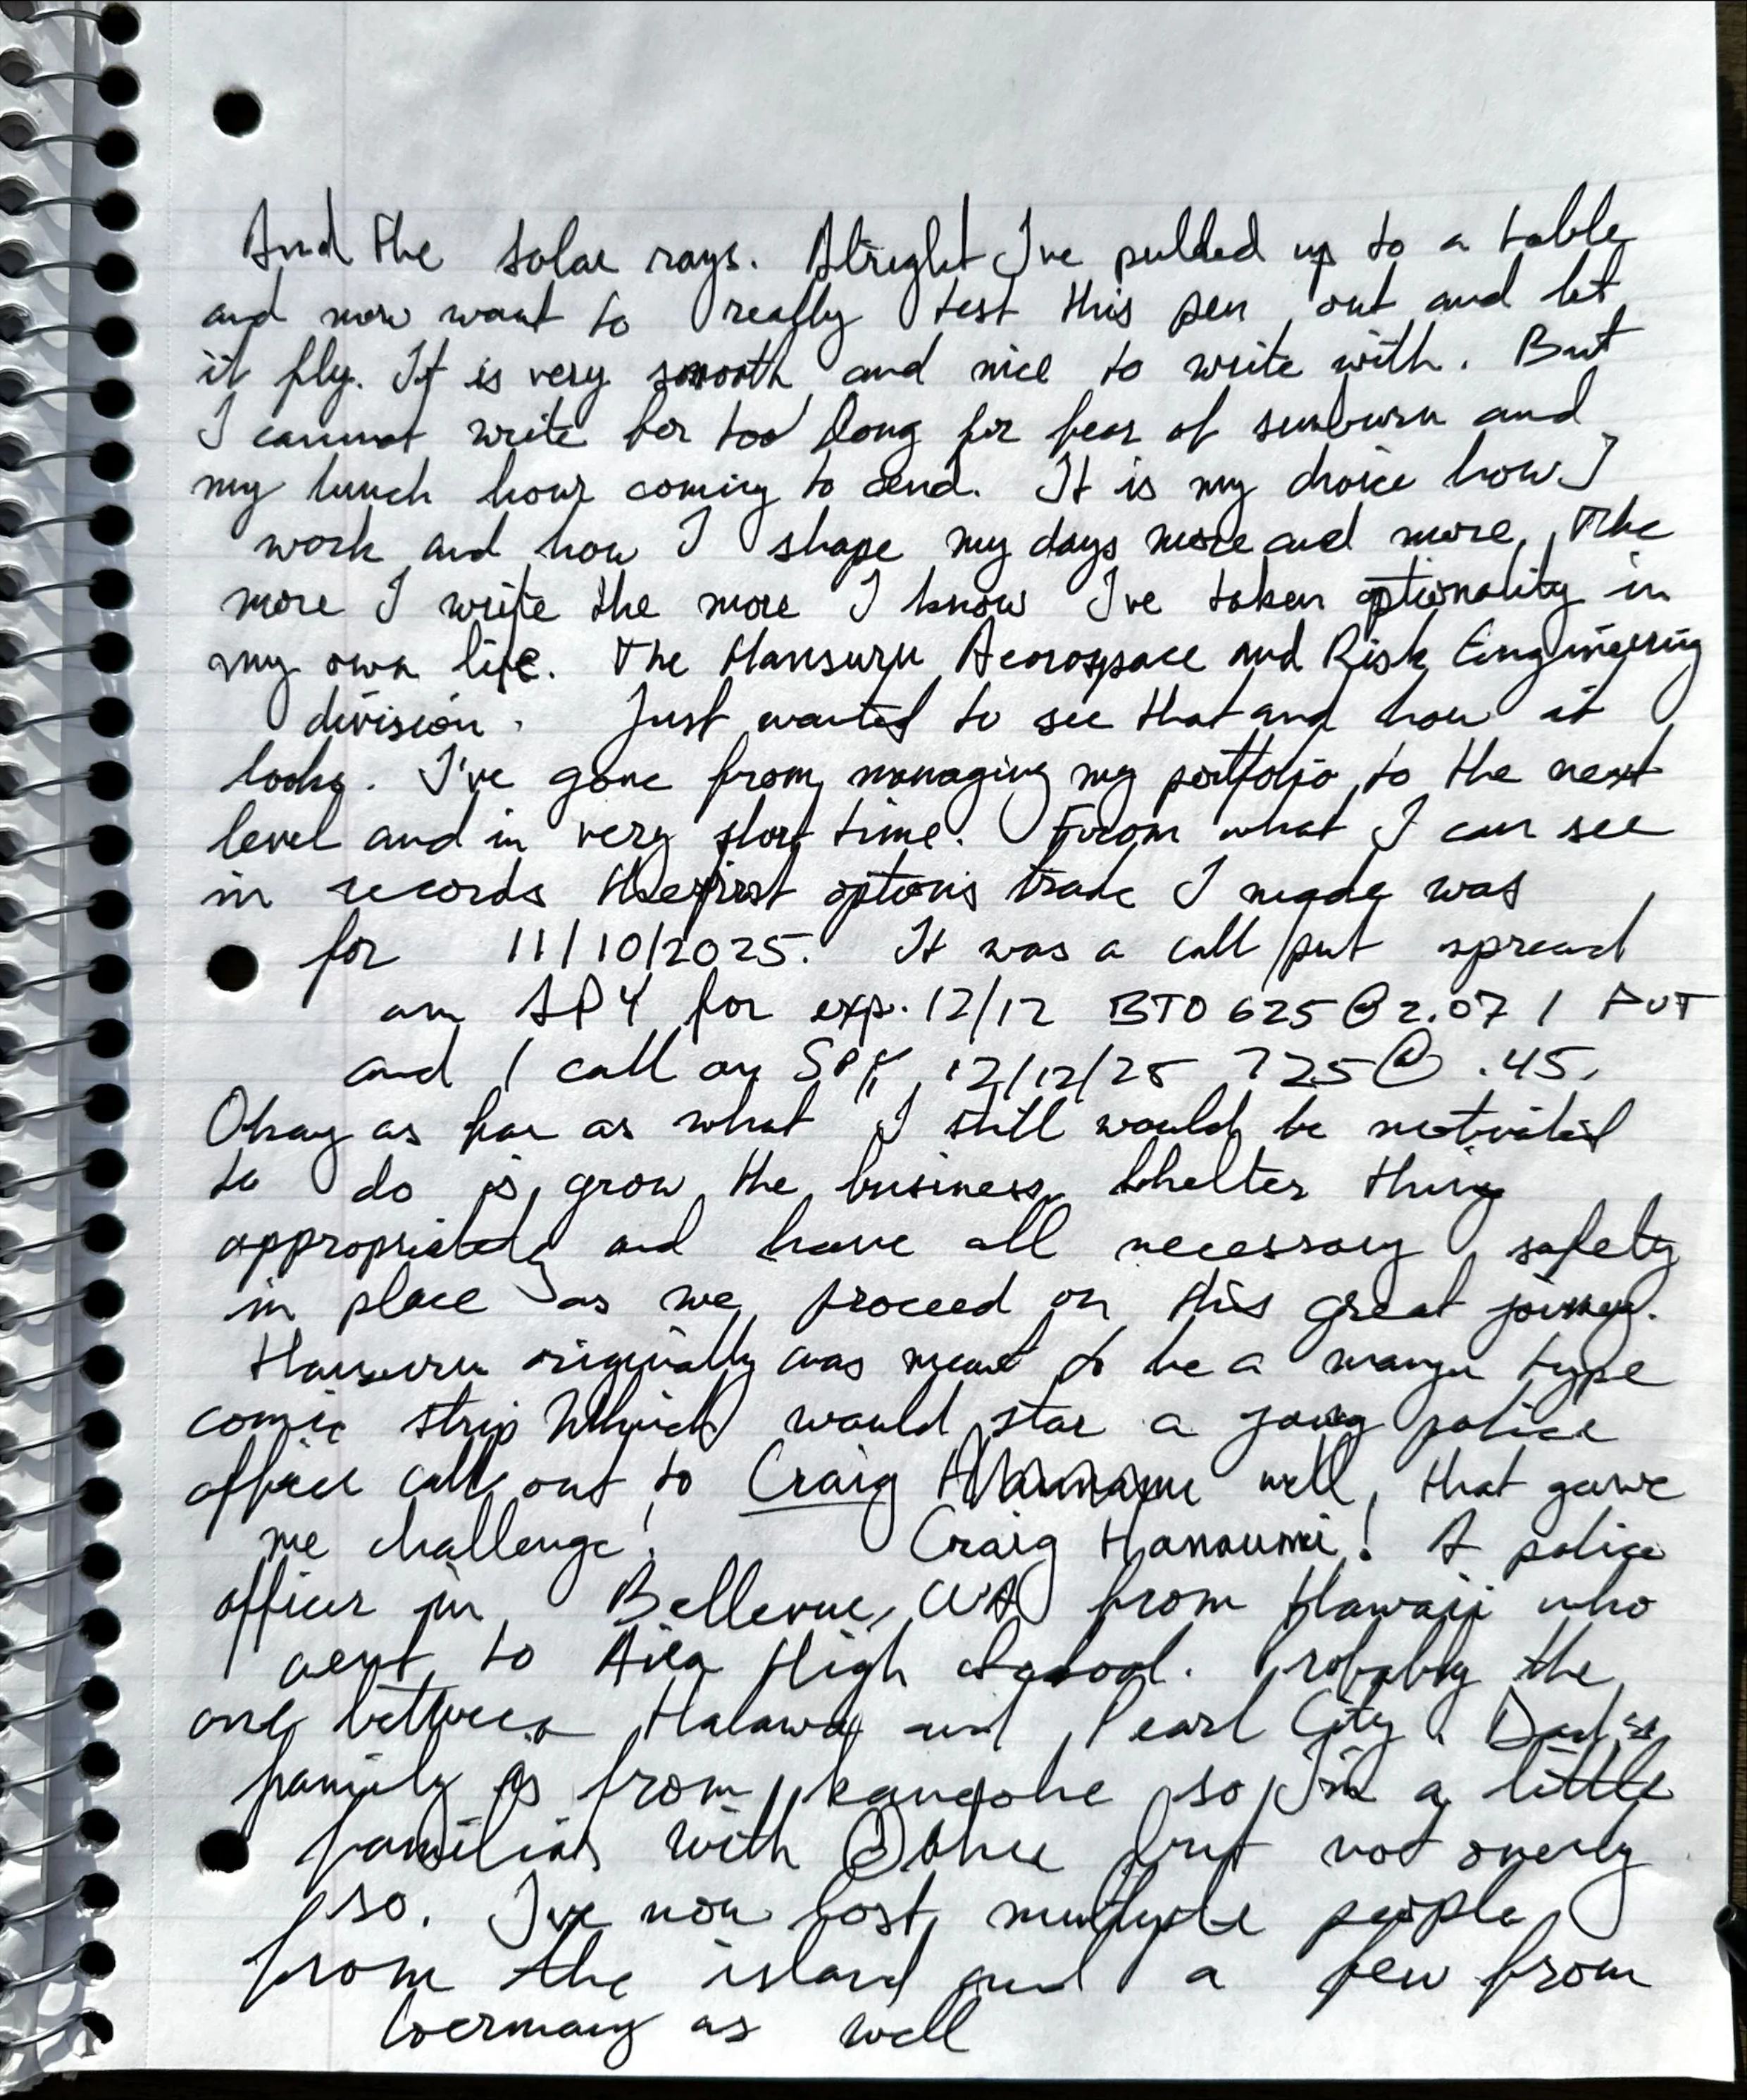 And the solar rays. Alright I've pulled up to a table
and now want to really test this pen out and let
it fly. It is very smooth and nice to write with. But
I cannot write for too long for fear of sunburn and
my lunch hour coming to aend. It is my choice how I
work and how I shape my days more and more. The
more I write the more I know I've taken optionality in
my own life. The Hansuru Aeorospace and Risk Engineering
division. Just wanted to see that and how it
looks. I've gone from managing my portfolio to the next
level and in very short time. From what I can see
in records the first options trade I made was
for 11/10/2025. It was a call/put spread
on SPY for exp. 12/12 BTO 625 @ 2.07 1 PUT
and 1 call on SPY 12/12/25 725 @ .45.
Okay as far as what I still would be motivated
to do is grow the business shelter thing
appropriately and have all necessary safety
in place as we proceed on this great journey.
Hansuru originally was meant to be a manga type
comic strip Which would star a young police
officer call out to Craig well, that gave
me challenge! Craig Hanaumi! A police
officer in Bellevue, WA from Hawaii who
went to Aiea High School. Probably the
one between Halawa and Pearl City. Dad's
family is from kaneohe so I'm a little
familiar with Oahu but not overly
so. I've now lost multiple people
from the island and a few from
Germany as well